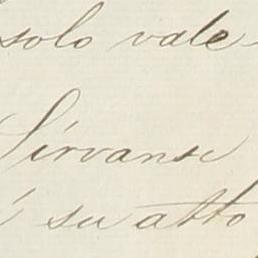 solo vale
Sírvanse
é su atto